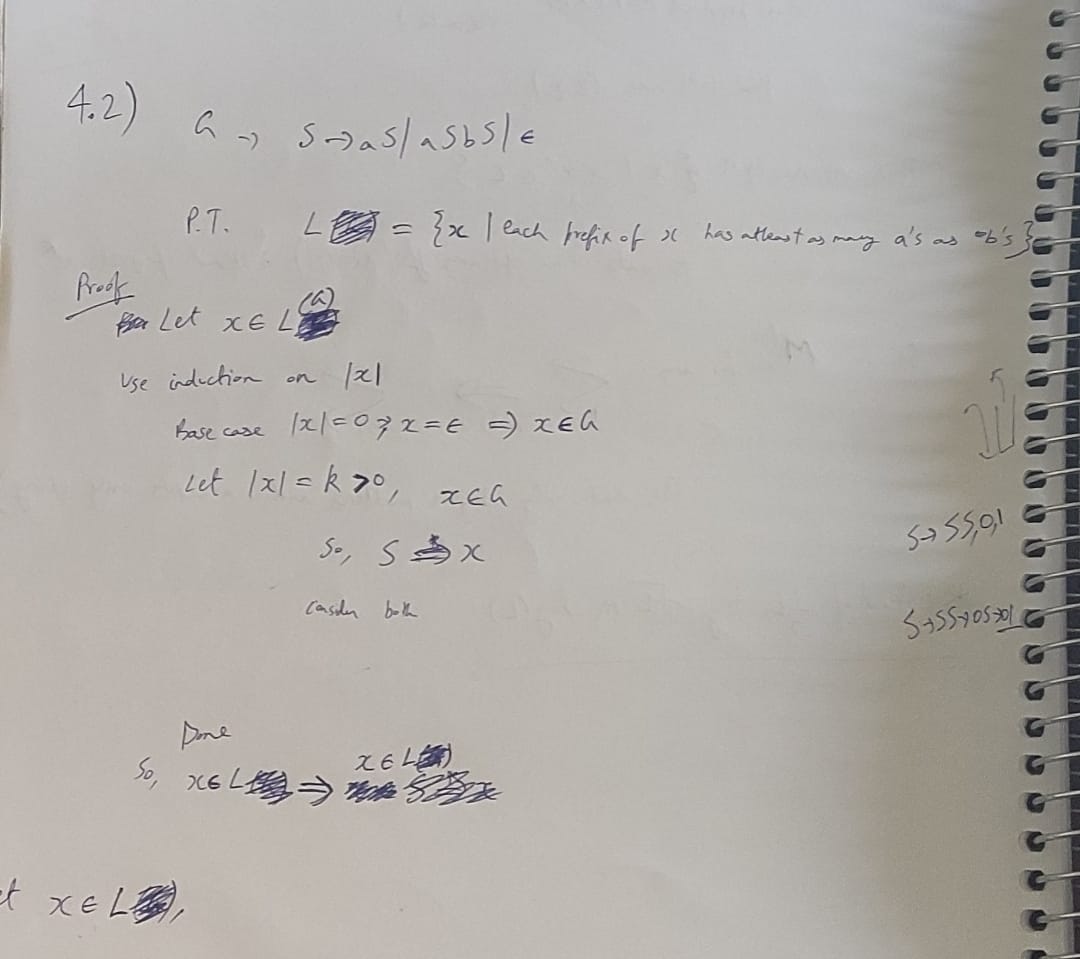 4.2) G → S → aS | aSbS | ϵ
P.T. L = {x | each prefix of x has atleast as many a's as b's}
Proof
Let x ∈ L(G)
Use induction on |x|
Base case |x| = 0 ⇒ x = ϵ ⇒ x ∈ G
Let |x| = k > 0, x ∈ G
So, S x
S → SS, 0, 1
Consider both
Done
x ∈ L
So, x ∈ L ⇒
x ∈ L ,